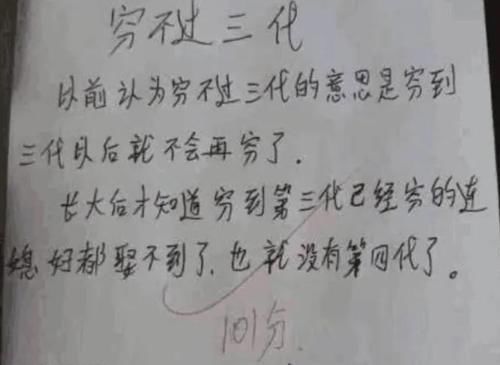 穷不过三代
以前认为穷不过三代的意思是穷到
三代以后就不会再穷了.
长大后才知道穷到第三代已经穷的连
媳妇都娶不到了,也就没有第四代了。
101分.